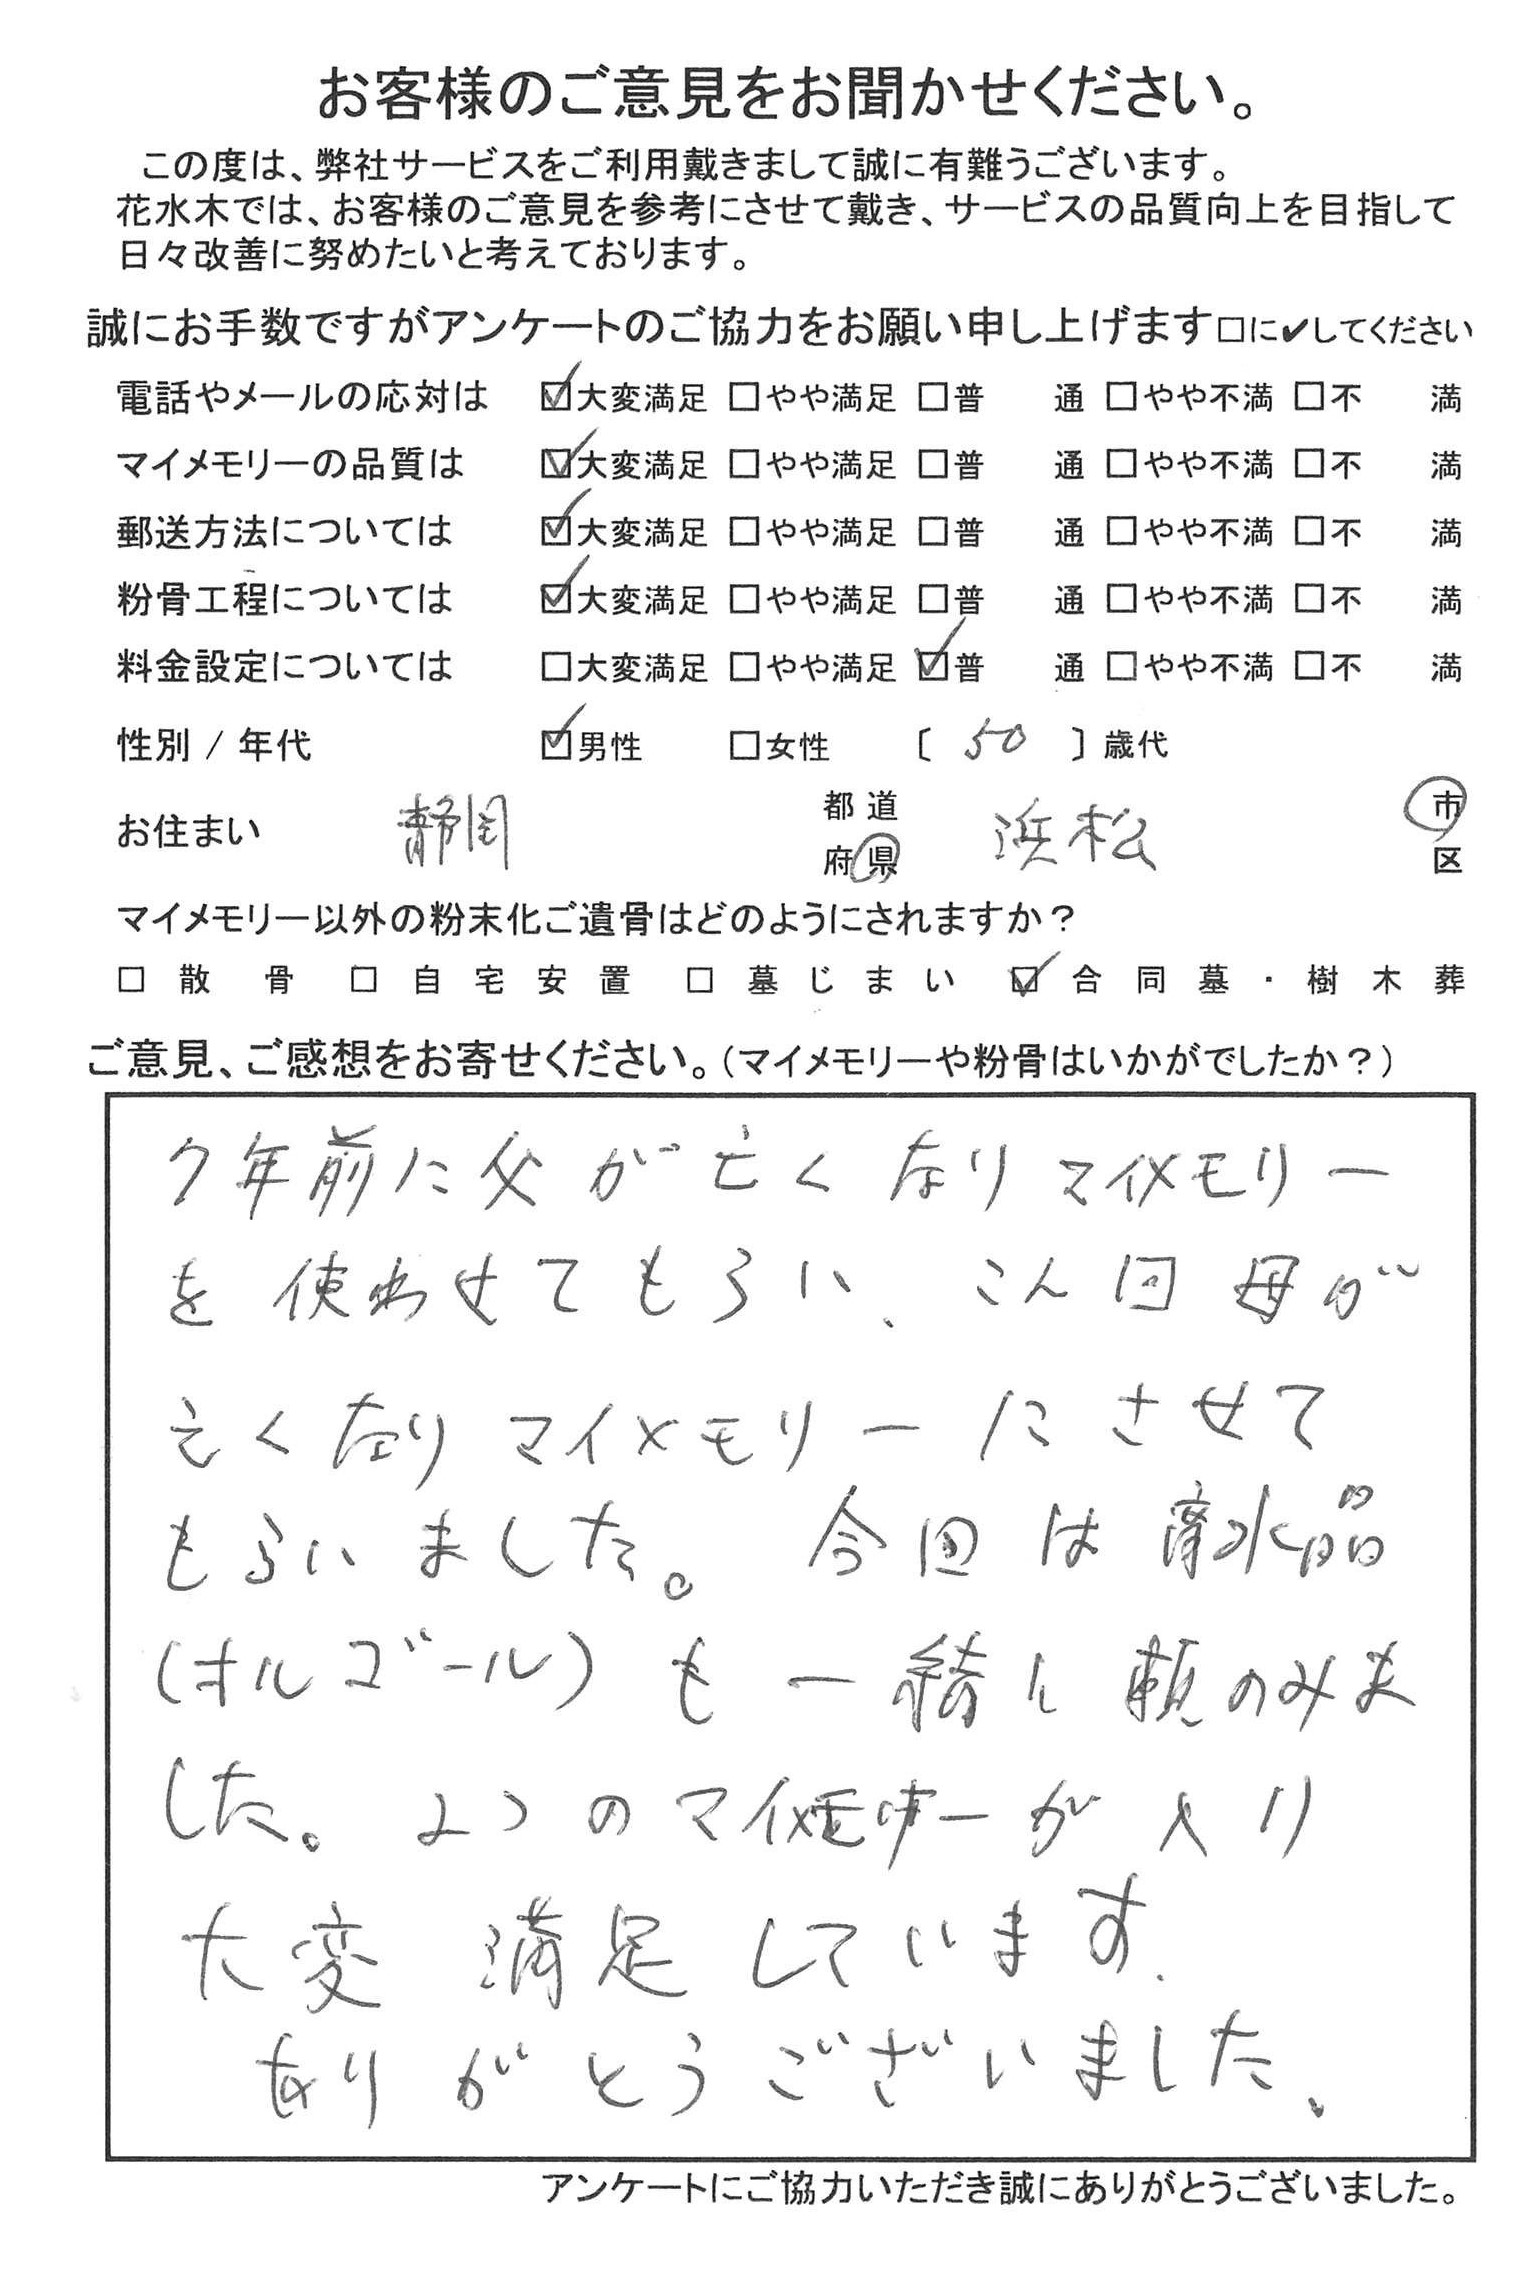 お客様のご意見をお聞かせください。
この度は、弊社サービスをご利用戴きまして誠に有難うございます。
花水木では、お客様のご意見を参考にさせて戴き、サービスの品質向上を目指して
日々改善に努めたいと考えております。
誠にお手数ですがアンケートのご協力をお願い申し上げます□に✔してください
電話やメールの応対は ☑大変満足 □やや満足 □普 通 □やや不満 □不 満
マイメモリーの品質は ☑大変満足 □やや満足 □普 通 □やや不満 □不 満
郵送方法については ☑大変満足 □やや満足 □普 通 □やや不満 □不 満
粉骨工程については ☑大変満足 □やや満足 □普 通 □やや不満 □不 満
料金設定については □大変満足 □やや満足 ☑普 通 □やや不満 □不 満
性別 / 年代 ☑男性 □女性 〔 50 〕歳代
お住まい 静岡 都道府県 浜松 市区
マイメモリー以外の粉末化ご遺骨はどのようにされますか？
□ 散骨 □ 自宅安置 □ 墓じまい ☑ 合同墓・樹木葬
ご意見、ご感想をお寄せください。（マイメモリーや粉骨はいかがでしたか？）
7年前に父が亡くなりマイメモリー
を使わせてもらい、こん回母が
亡くなりマイメモリーにさせて
もらいました。今回は 水晶
(オルゴール)も一緒に頼のみま
した。2つのマイメモリーが入り
大変満足しています.
ありがとうございました、
アンケートにご協力いただき誠にありがとうございました。